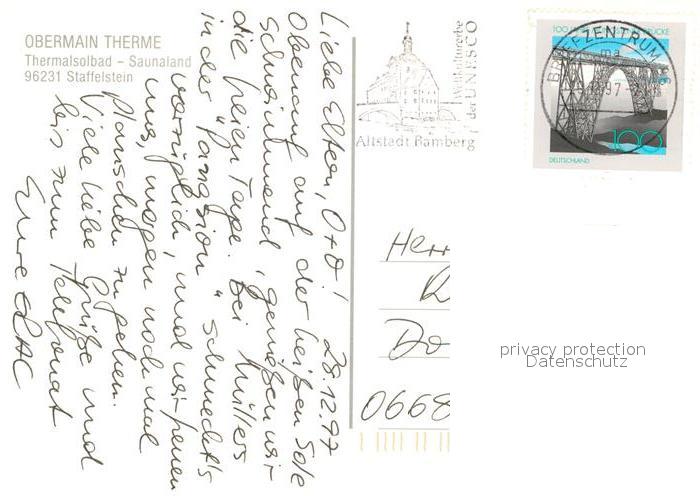 OBERMAIN THERME
Thermalsolbad – Saunaland
96231 Staffelstein
28.12.97
Liebe Eltern, Otto!
Obenauf auf der heißen Sole
schwimmend, genießen wir
die freien Tage. Bei Müllers
in der "Pension" schmeckt's
vorzüglich, und wir freuen
uns, morgen noch mal
planschen zu gehen.
Viele liebe Grüße und
bis zum Telefonat
Eure
Altstadt Bamberg
Weltkulturerbe
der UNESCO
BRIEFZENTRUM
97
100
DEUTSCHLAND
Herr
Do
0668
privacy protection
Datenschutz